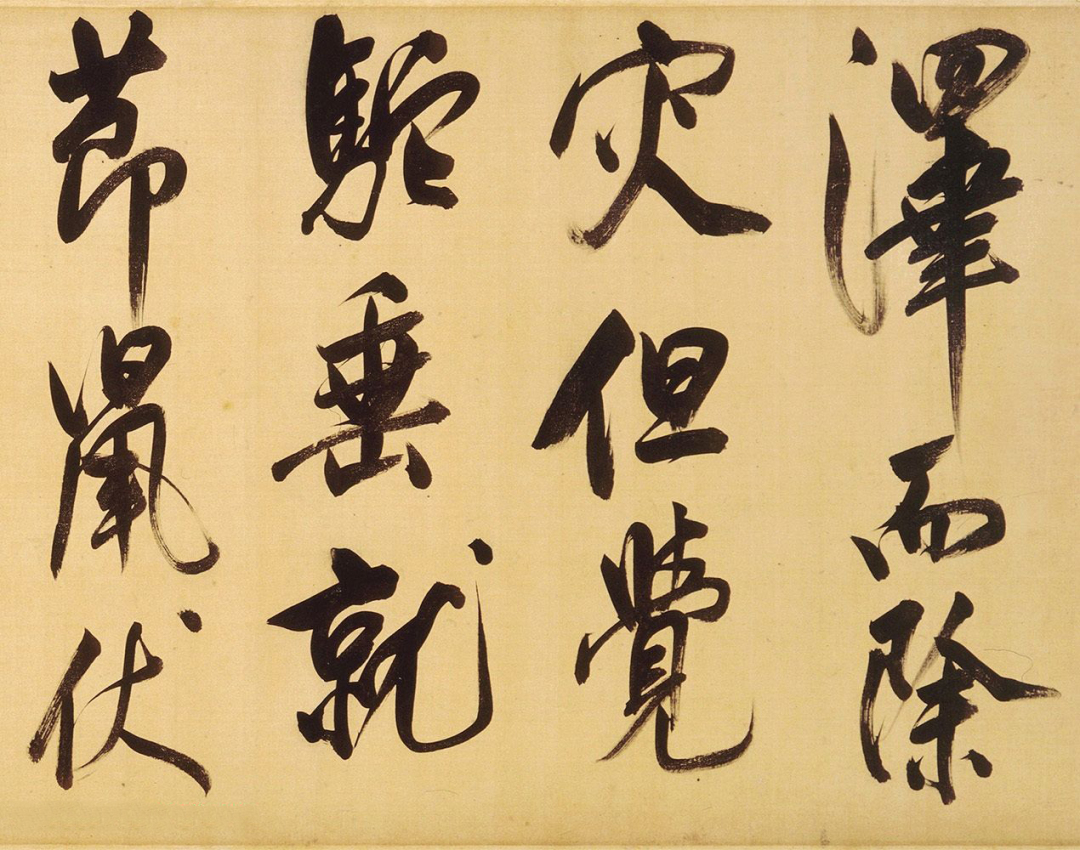 澤而除
灾但覺
駝垂就
節鼠伏